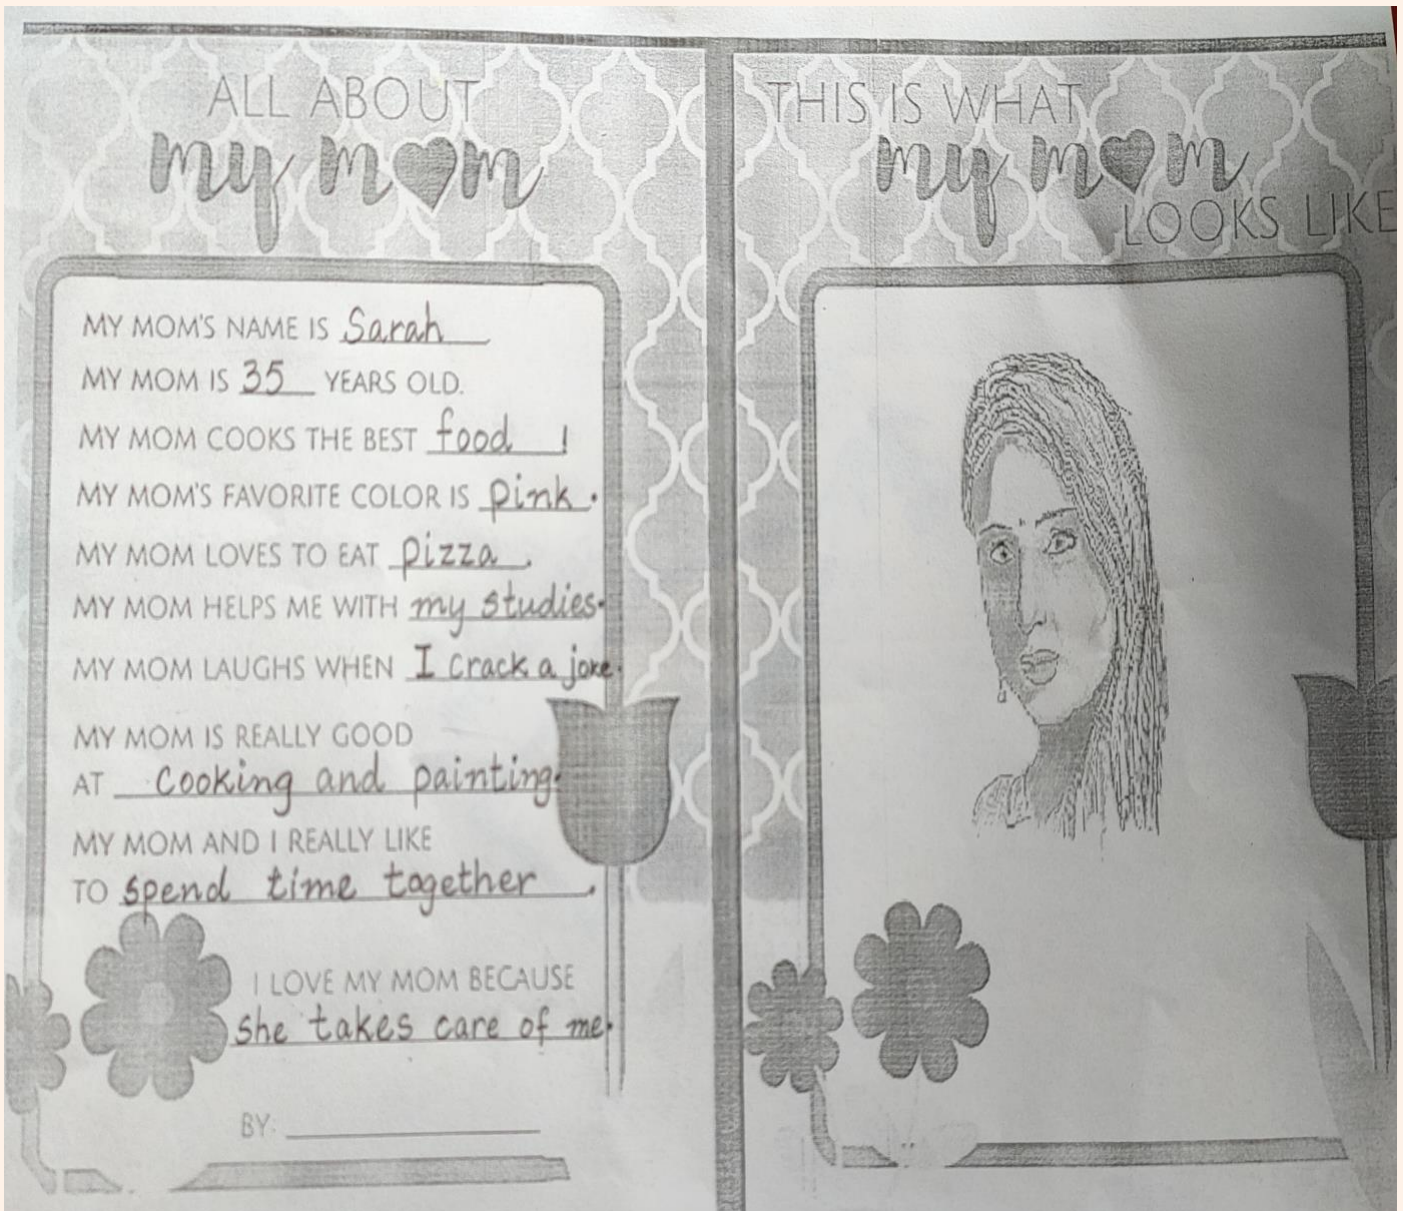 ALL ABOUT
my mom
MY MOM'S NAME IS Sarah
MY MOM IS 35 YEARS OLD.
MY MOM COOKS THE BEST food !
MY MOM'S FAVORITE COLOR IS pink.
MY MOM LOVES TO EAT pizza.
MY MOM HELPS ME WITH my studies.
MY MOM LAUGHS WHEN I crack a joke.
MY MOM IS REALLY GOOD
AT cooking and painting.
MY MOM AND I REALLY LIKE
TO spend time together.
I LOVE MY MOM BECAUSE
she takes care of me.
BY:
THIS IS WHAT
my mom
LOOKS LIKE